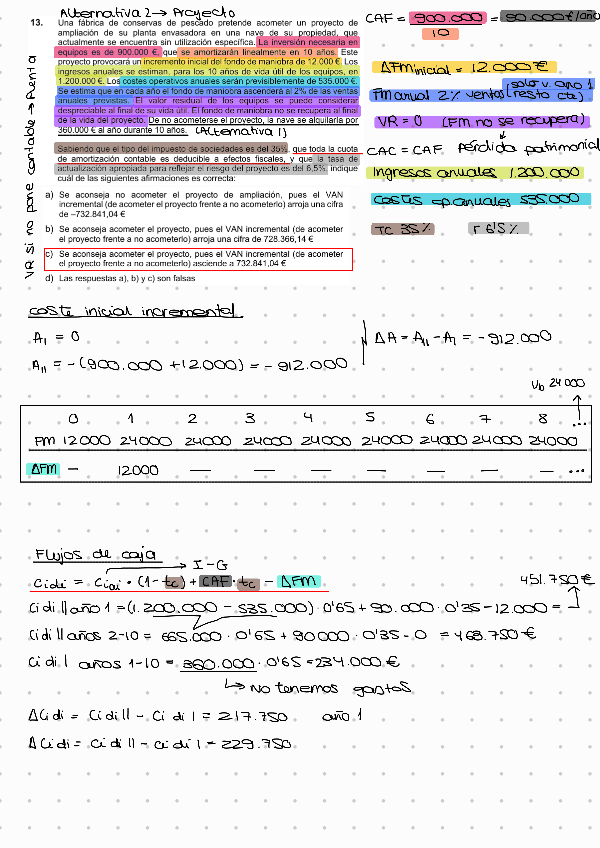 Alternativa 2 → Proyecto
13. Una fábrica de conservas de pescado pretende acometer un proyecto de
ampliación de su planta envasadora en una nave de su propiedad, que
actualmente se encuentra sin utilización específica. La inversión necesaria en
equipos es de 900.000 €, que se amortizarán linealmente en 10 años. Este
proyecto provocará un incremento inicial del fondo de maniobra de 12.000 €. Los
ingresos anuales se estiman, para los 10 años de vida útil de los equipos, en
1.200.000 €. Los costes operativos anuales serán previsiblemente de 535.000 €.
Se estima que en cada año el fondo de maniobra ascenderá al 2% de las ventas
anuales previstas. El valor residual de los equipos se puede considerar
despreciable al final de su vida útil. El fondo de maniobra no se recupera al final
de la vida del proyecto. De no acometerse el proyecto, la nave se alquilaría por
360.000 € al año durante 10 años. (Alternativa 1)
Sabiendo que el tipo del impuesto de sociedades es del 35%, que toda la cuota
de amortización contable es deducible a efectos fiscales, y que la tasa de
actualización apropiada para reflejar el riesgo del proyecto es del 6,5%, indique
cuál de las siguientes afirmaciones es correcta:
a) Se aconseja no acometer el proyecto de ampliación, pues el VAN
incremental (de acometer el proyecto frente a no acometerlo) arroja una cifra
de –732.841,04 €
b) Se aconseja acometer el proyecto, pues el VAN incremental (de acometer
el proyecto frente a no acometerlo) arroja una cifra de 728.366,14 €
c) Se aconseja acometer el proyecto, pues el VAN incremental (de acometer
el proyecto frente a no acometerlo) asciende a 732.841,04 €
d) Las respuestas a), b) y c) son falsas
VR si no pone contable → Renta
CAF = 900.000 = 90.000 €/año
10
ΔFM inicial = 12.000 €
FM anual 2% ventas (solo v. año 1
resto cte)
VR = 0 (FM no se recupera)
CAC = CAF Pérdida patrimonial
Ingresos anuales 1.200.000
Costes op. anuales 535.000
Tc 35% r 6'5%
coste inicial incremental
A₁ = 0
A₁₁ = -(900.000 + 12.000) = - 912.000
ΔA = A₁₁ - A₁ = - 912.000
Ub 24000
0 1 2 3 4 5 6 7 8 ...
FM 12000 24000 24000 24000 24000 24000 24000 24000 24000
ΔFM — 12000 — — — — — — — ...
Flujos de caja
→ I-G
Cidi = Ciai · (1- tc) + CAF · tc - ΔFM
451.750 €
Cidi II año 1 = (1.200.000 - 535.000) · 0'65 + 90.000 · 0'35 - 12.000 =
Cidi II años 2-10 = 665.000 · 0'65 + 90000 · 0'35 - 0 = 463.750 €
Cidi I años 1-10 = 360.000 · 0'65 = 234.000 €
→ No tenemos gastos
ΔCidi = Cidi II - Cidi I = 217.750 año 1
ΔCidi = Cidi II - Cidi I = 229.750